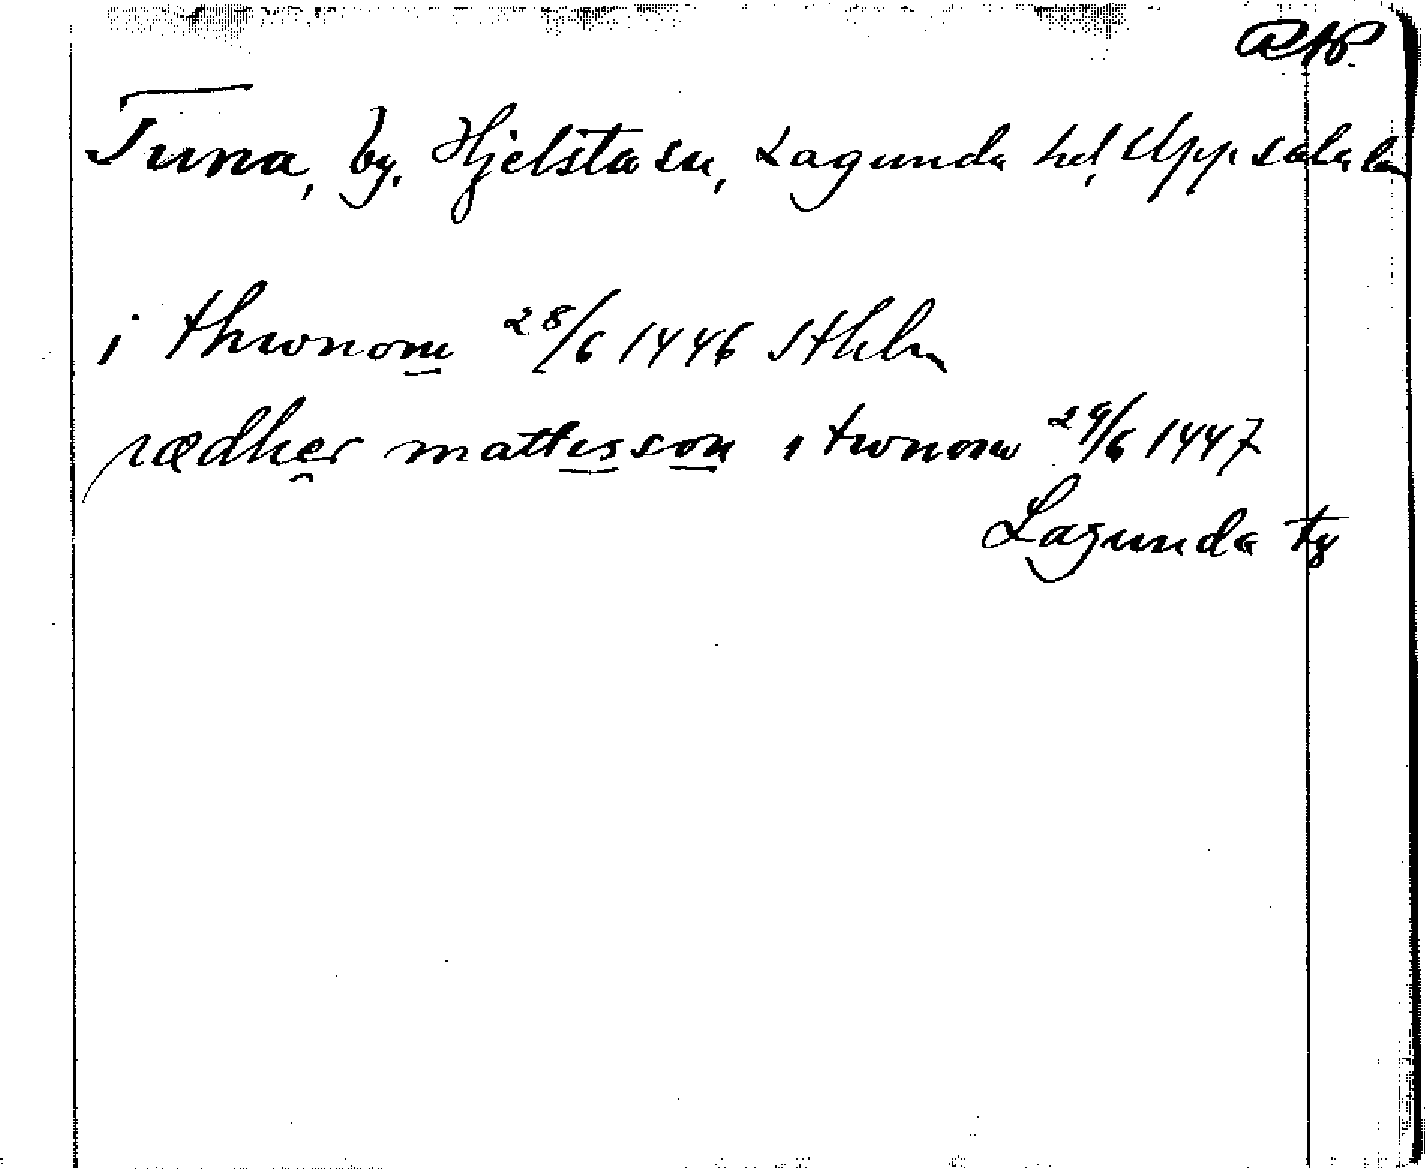 RAP.
Tuna, by, Hjelsta sn, Lagunda hd, Uppsala län
i thwnom 28/6 1446 Sthlm
rædher mattisson i twnom 29/6 1447
Lagunda tg